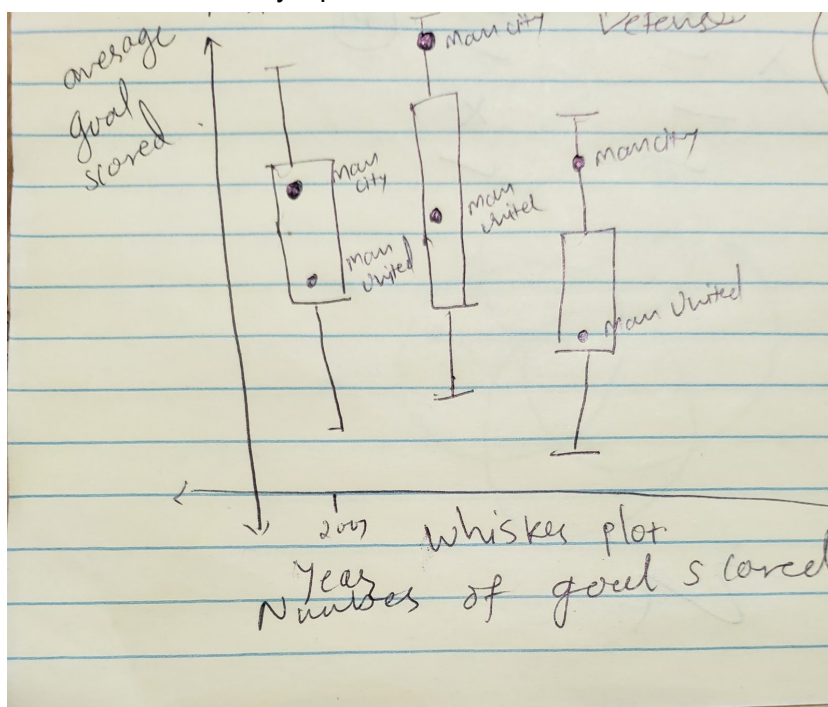 average
goal
scored
Man city
Defense
Man
city
Man
United
Man
United
Man city
Man United
2007
Year
whisker plot
Number of goal scored